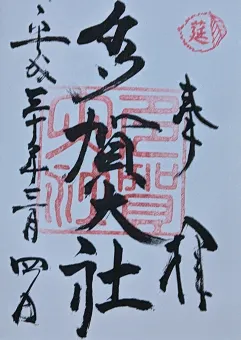 奉拝
多賀大社
平成三十年三月四日
延